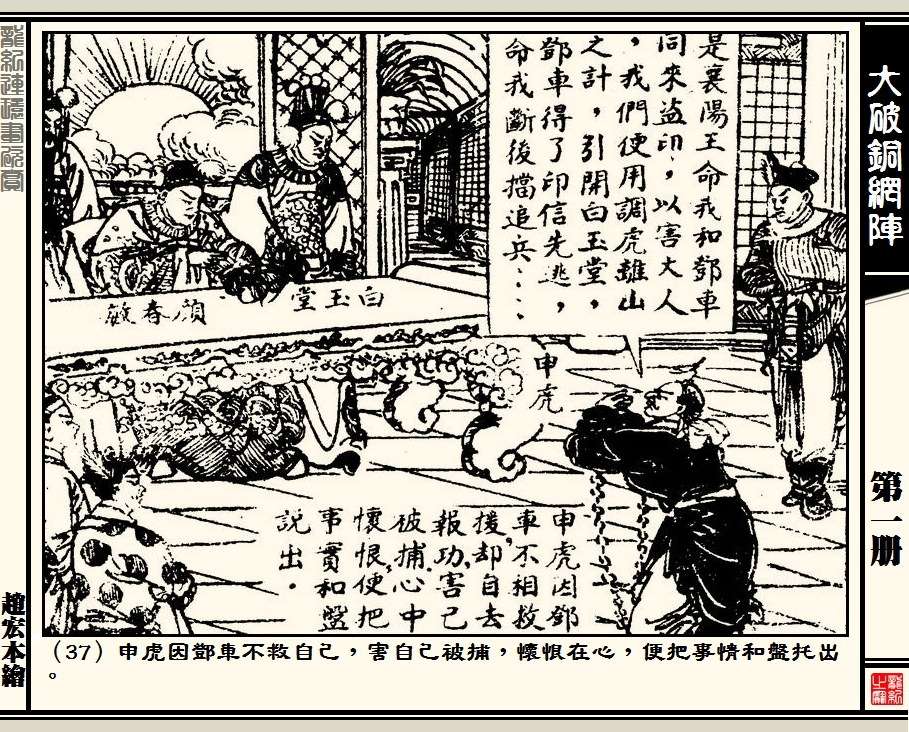 大破銅網陣
第一册
是襄陽王命我和鄧車
同來盜印，以害大人
，我們便用調虎離山
之計，引開白玉堂，
鄧車得了印信先逃，
命我斷後擋追兵....
白玉堂
顏春敏
申虎
申虎因鄧
車不相救
援，却自去
報功，害己
被捕，心中
懷恨，便把
事實和盤
說出．
(37) 申虎因鄧車不救自己，害自己被捕，懷恨在心，便把事情和盤托出
。
趙宏本繪